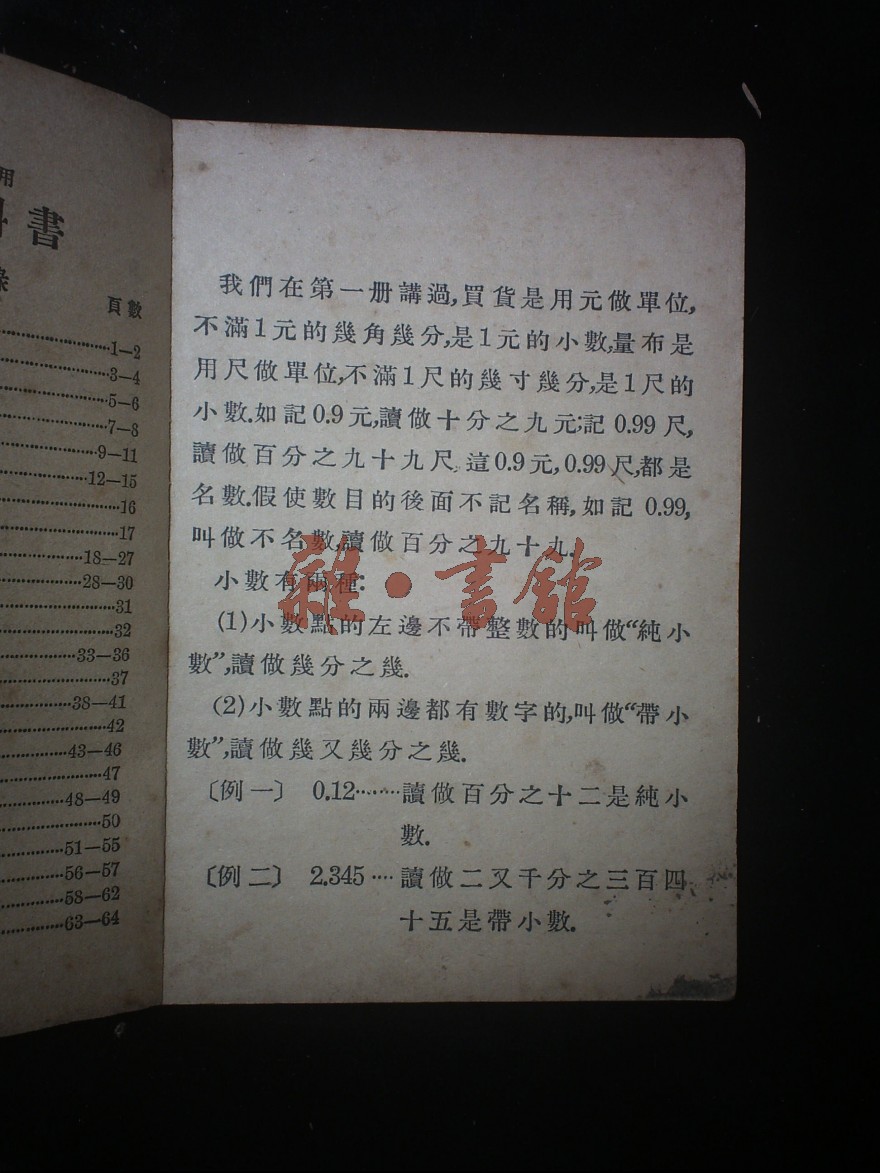 用
書
頁數
1—2
3—4
5—6
7—8
9—11
12—15
16
17
18—27
28—30
31
32
33—36
37
38—41
42
43—46
47
48—49
50
51—55
56—57
58—62
63—64
我們在第一册講過,買貨是用元做單位,
不滿1元的幾角幾分,是1元的小數,量布是
用尺做單位,不滿1尺的幾寸幾分,是1尺的
小數.如記0.9元,讀做十分之九元;記0.99尺,
讀做百分之九十九尺.這0.9元,0.99尺,都是
名數.假使數目的後面不記名稱,如記0.99,
叫做不名數,讀做百分之九十九.
小數有兩種:
(1)小數點的左邊不帶整數的叫做“純小
數”,讀做幾分之幾.
(2)小數點的兩邊都有數字的,叫做“帶小
數”,讀做幾又幾分之幾.
〔例一〕 0.12········讀做百分之十二是純小
數.
〔例二〕 2.345····讀做二又千分之三百四
十五是帶小數.
雜·書館